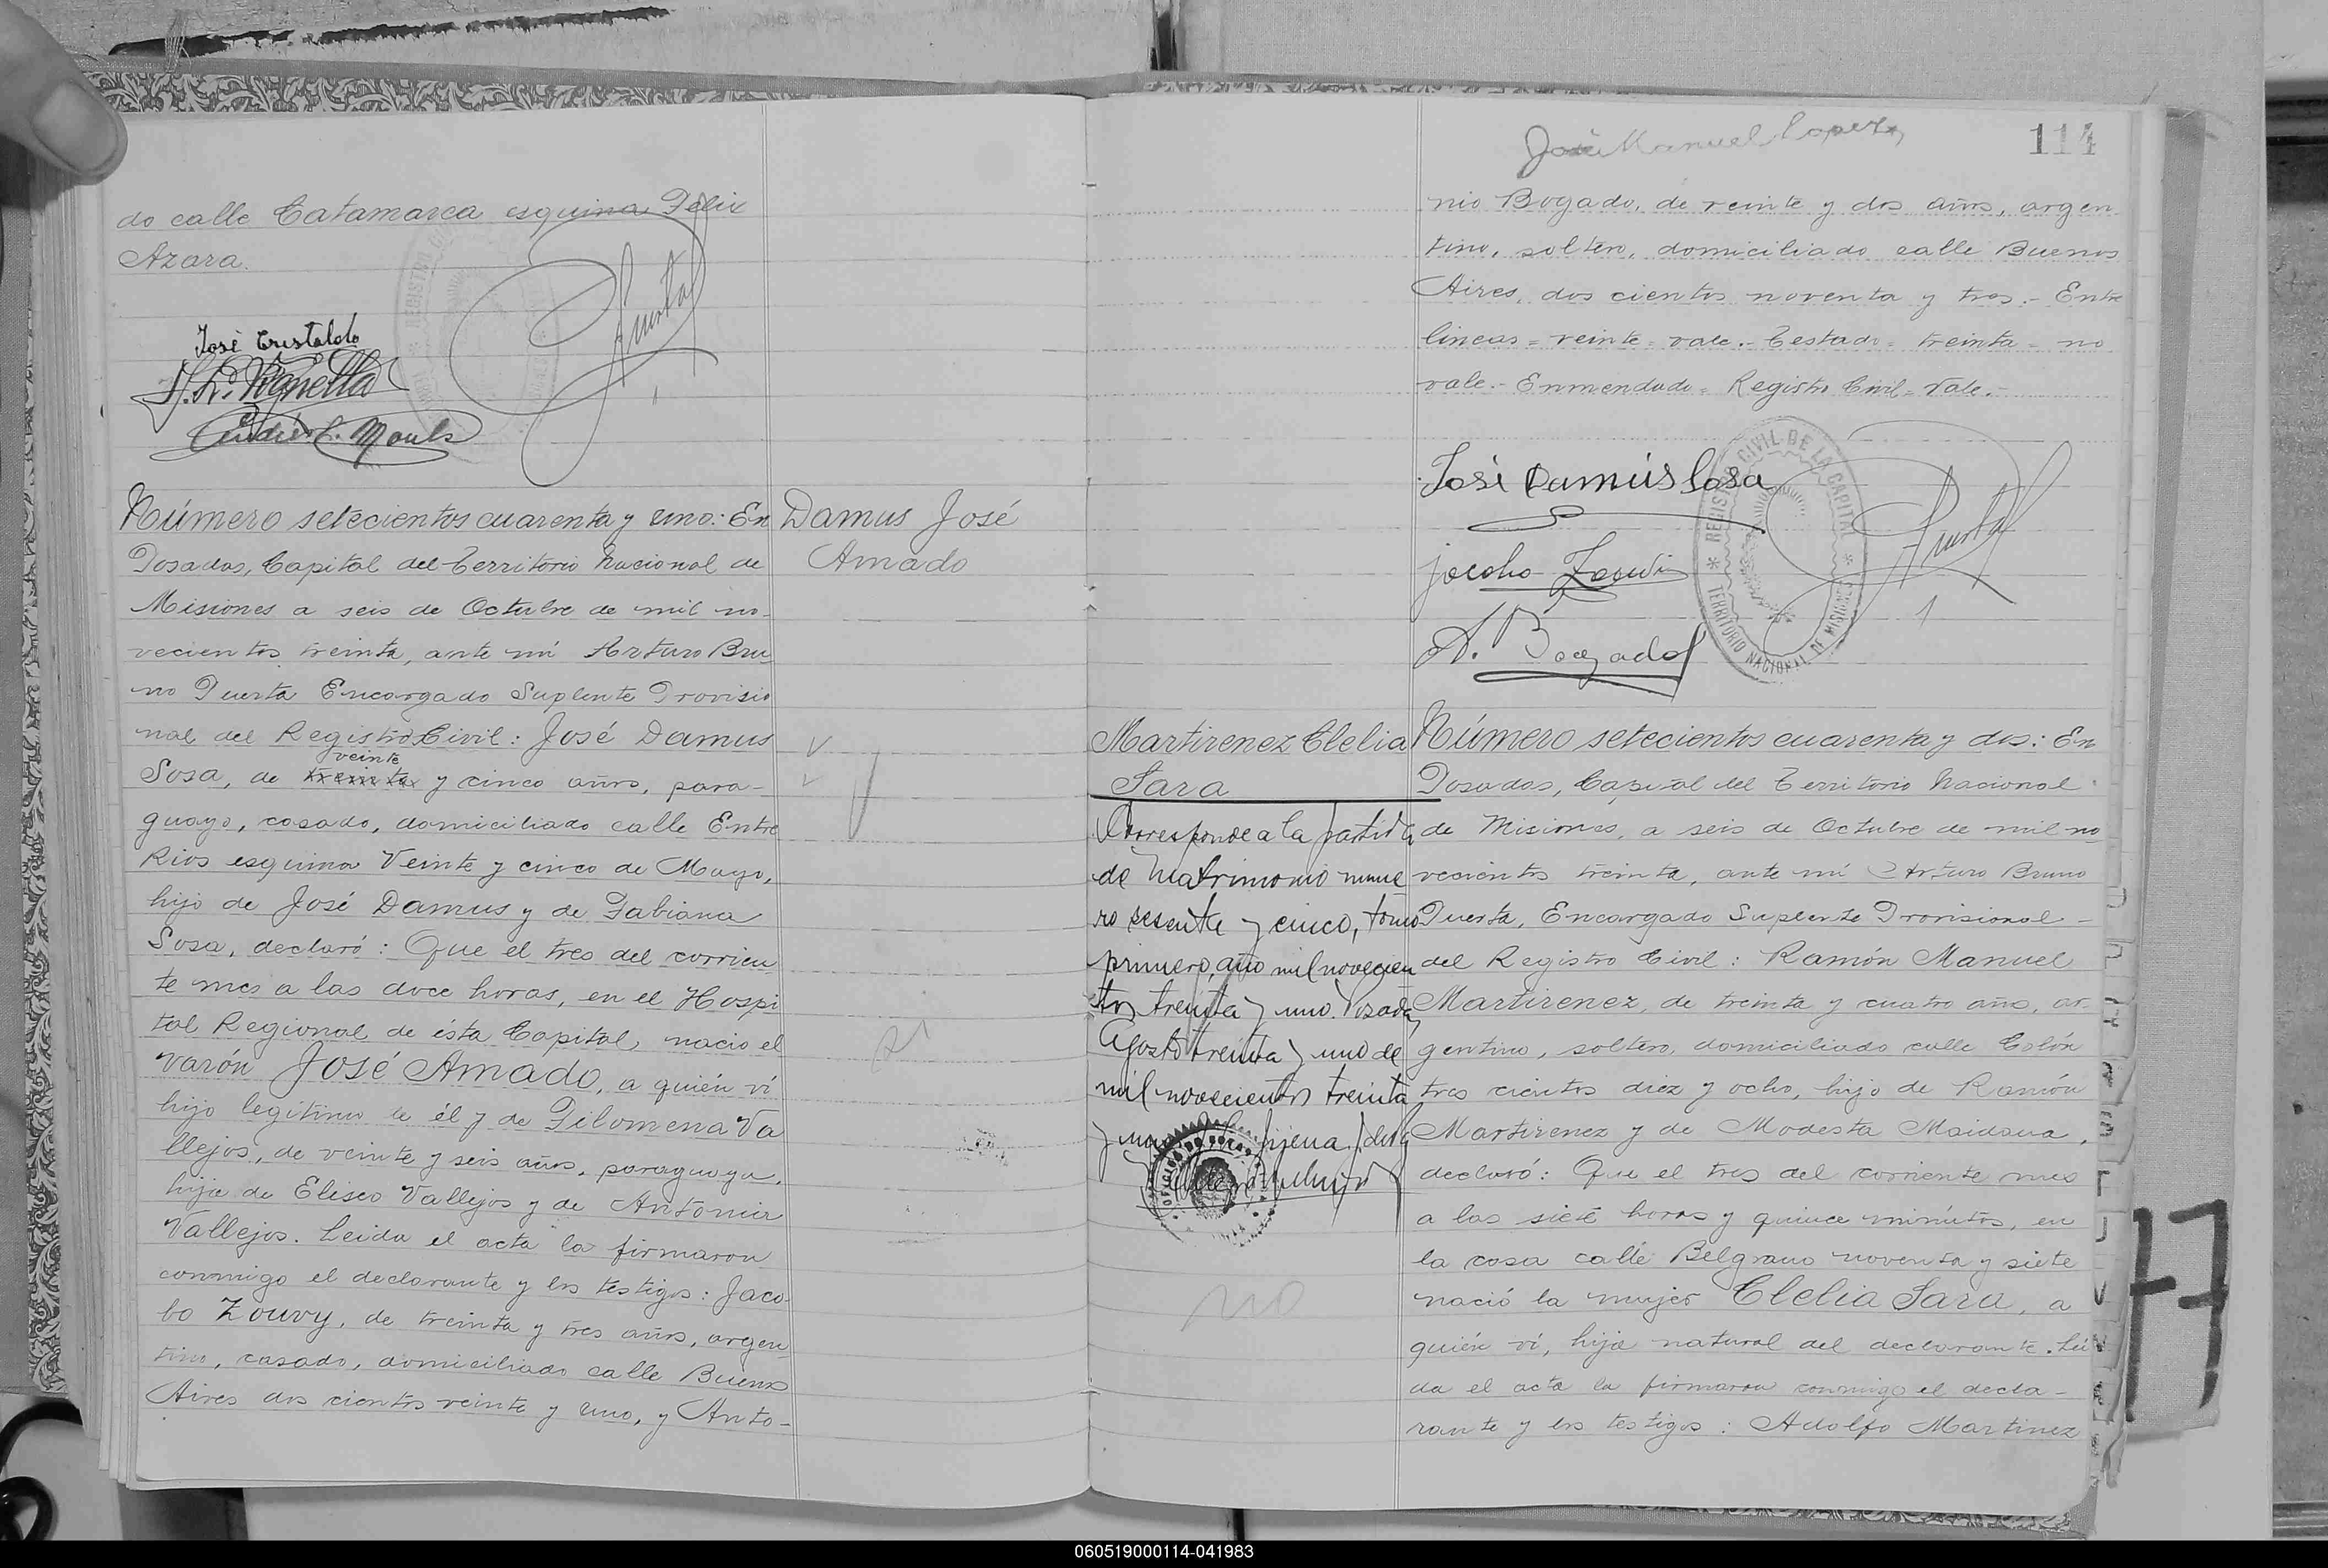 do calle Catamarca esquina Felix
Azara.
José Cristaldo
Número setecientos cuarenta y uno: En
Posadas, Capital del Territorio Nacional de
Misiones a seis de Octubre de mil no-
vecientos treinta, ante mí Arturo Bru
no Puerta Encargado Suplente Provisio
nal del Registro Civil: José Damus
veinte
Sosa, de treinta y cinco años, para-
guayo, casado, domiciliado calle Entre
Rios esquina Veinte y cinco de Mayo,
hijo de José Damus y de Fabiana
Sosa, declaró: Que el tres del corrien
te mes a las doce horas, en el Hospi
tal Regional de ésta Capital, nacio el
varón José Amado, a quién ví
hijo legítimo de él y de Filomena Va
llejos, de veinte y seis años, paraguaya,
hija de Eliseo Vallejos y de Antonia
Vallejos. Leida el acta la firmaron
conmigo el declarante y los testigos: Jaco-
bo Zouvy, de treinta y tres años, argen
tino, casado, domiciliado calle Buenos
Aires dos cientos veinte y uno, y Anto-
Damus José
Amado
José Manuel Lopez
114
nio Bogado, de veinte y dos años, argen
tino, soltero, domiciliado calle Buenos
Aires, dos cientos noventa y tres.- Entre
lineas = veinte = vale.- Testado = treinta = no
vale.- Enmendado = Registro Civil = Vale.-
José Damús Sosa
A. Bogado
REGISTRO CIVIL DE LA CAPITAL
* TERRITORIO NACIONAL DE MISIONES *
Martirenez Clelia
Sara
Corresponde a la partida
de Matrimonio núme
ro sesenta y cinco, tomo
primero, año mil novecien
tos treinta y uno. Posadas
Agosto treinta y uno de
mil novecientos treinta
y uno
Número setecientos cuarenta y dos: En
Posadas, Capital del Territorio Nacional
de Misiones, a seis de Octubre de mil no
vecientos treinta, ante mí Arturo Bruno
Puerta, Encargado Suplente Provisional
del Registro Civil: Ramón Manuel
Martirenez, de treinta y cuatro años, ar
gentino, soltero, domiciliado calle Colón
tres cientos diez y ocho, hijo de Ramón
Martirenez y de Modesta Maidana,
declaró: Que el tres del corriente mes
a las siete horas y quince minutos, en
la casa calle Belgrano noventa y siete
nació la mujer Clelia Sara, a
quién ví, hija natural del declarante. Leí
da el acta la firmaron conmigo el decla-
rante y los testigos: Adolfo Martinez
77
060519000114-041983